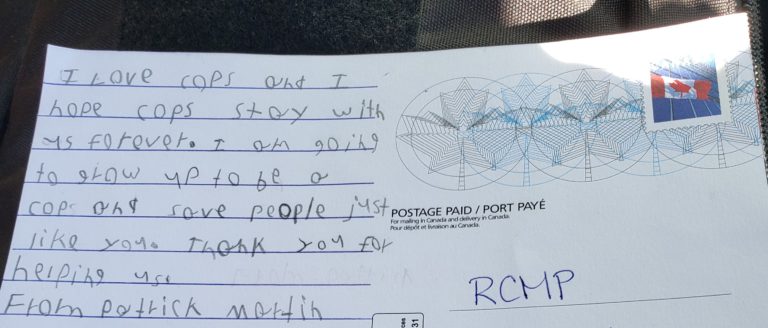 I Love cops and I
hope cops stay with
us forever. I am going
to grow up to be a
cops and save people just
like you. Thank you for
helping us.
From Patrick Martin
POSTAGE PAID / PORT PAYÉ
For mailing in Canada and delivery in Canada.
Pour dépôt et livraison au Canada.
RCMP
31